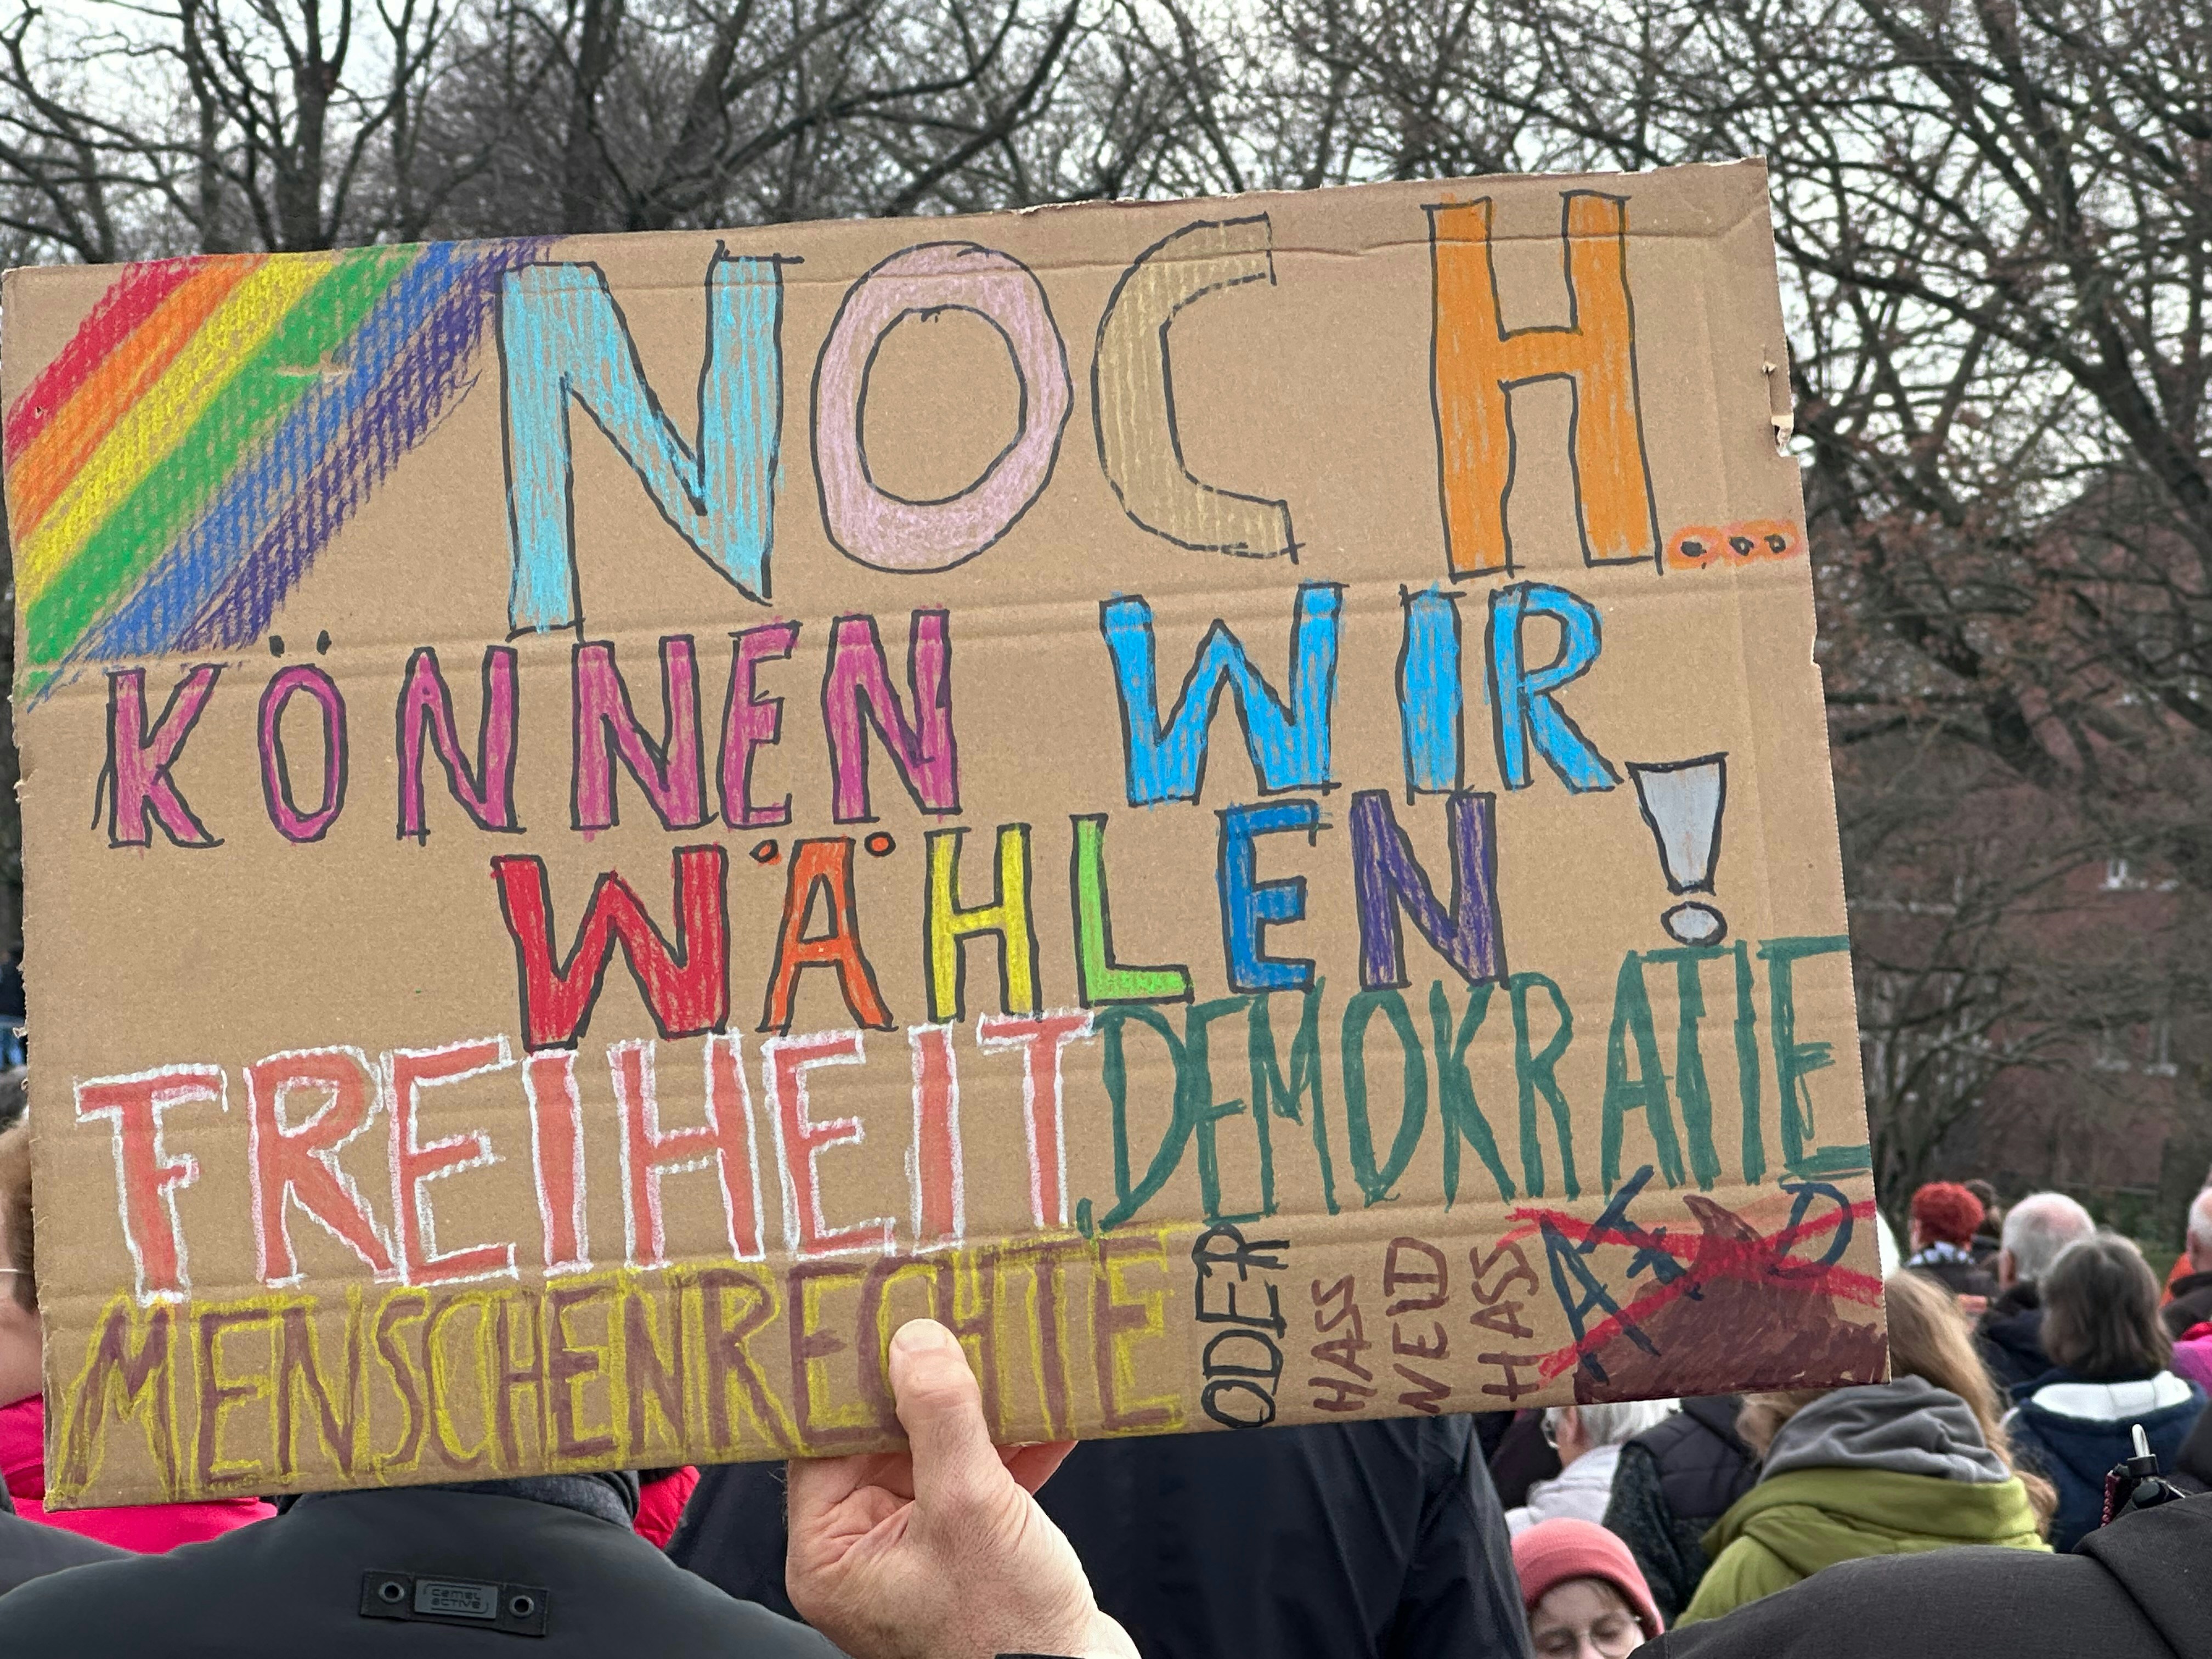 NOCH...
KÖNNEN WIR
WÄHLEN!
FREIHEIT DEMOKRATIE
MENSCHENRECHTE
ODER
HASS
NEID
HASS
AFD
camel
active